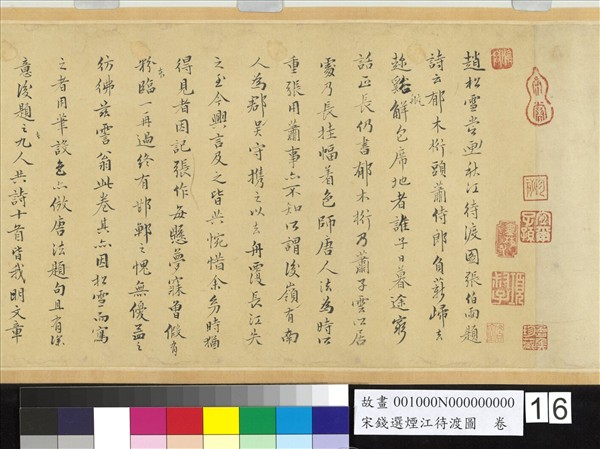 趙松雪嘗畫秋江待渡圖張伯雨題
詩云郁木衖頭蕭侍郎負薪歸去
谿解包席地者誰子日暮途窮
話正長仍書郁木衖乃蕭子雲所居
處乃長挂幅着色師唐人法為時所
重張用蕭事亦不知所謂後嶺有南
人為郡吳守携之以去舟覆長江失
之至今興言及之皆共惋惜余幼時猶
得見者因記張作每懸夢寐曾倣
臨一再過終有邯鄲之愧無復益之
彷彿玆霅翁此卷其亦因松雪而寫
之者用筆設色亦倣唐法題句且有深
意後題之九人共詩十首皆我明文章
故畫 001000N000000000
宋錢選煙江待渡圖 卷
16